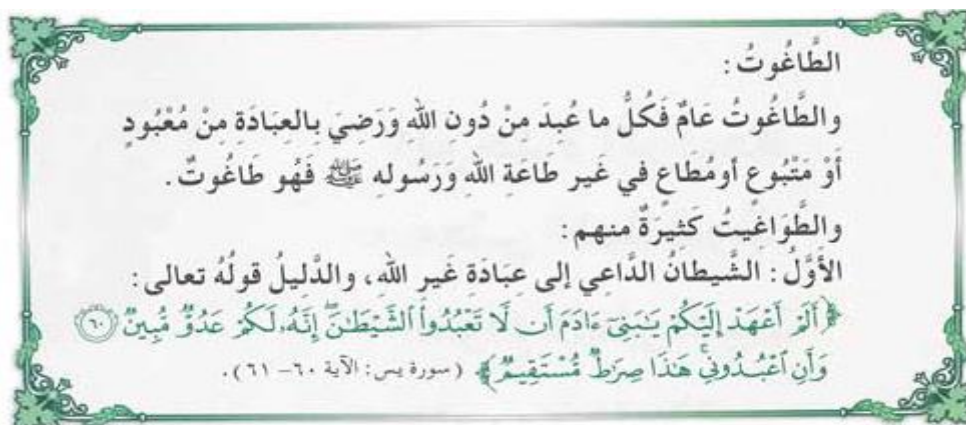 الطَّاغُوتُ :
والطَّاغُوتُ عَامٌ فَكُلُّ ما عُبِدَ مِنْ دُونِ اللهِ وَرَضِيَ بِالعِبَادَةِ مِنْ مُعْبُودٍ
أَوْ مَتْبُوعٍ أومُطَاعٍ في غَير طَاعَةِ اللهِ وَرَسُولِهِ ﷺ فَهُو طَاغُوتٌ .
والطَّوَاغِيتُ كَثِيرَةٌ منهم :
الأَوَّلُ : الشَّيطانُ الدَّاعِي إلى عِبَادَةِ غَيرِ اللهِ ، والدَّلِيلُ قولُهُ تعالى :
﴿أَلَمْ أَعْهَدْ إِلَيْكُمْ يَـٰبَنِىٓ ءَادَمَ أَن لَّا تَعْبُدُوا۟ ٱلشَّيْطَـٰنَ ۖ إِنَّهُۥ لَكُمْ عَدُوٌّ مُّبِينٌ ۝٦٠
وَأَنِ ٱعْبُدُونِى ۚ هَـٰذَا صِرَٰطٌ مُّسْتَقِيمٌ﴾ ( سورة يس : الآية ٦٠– ٦١ ) .